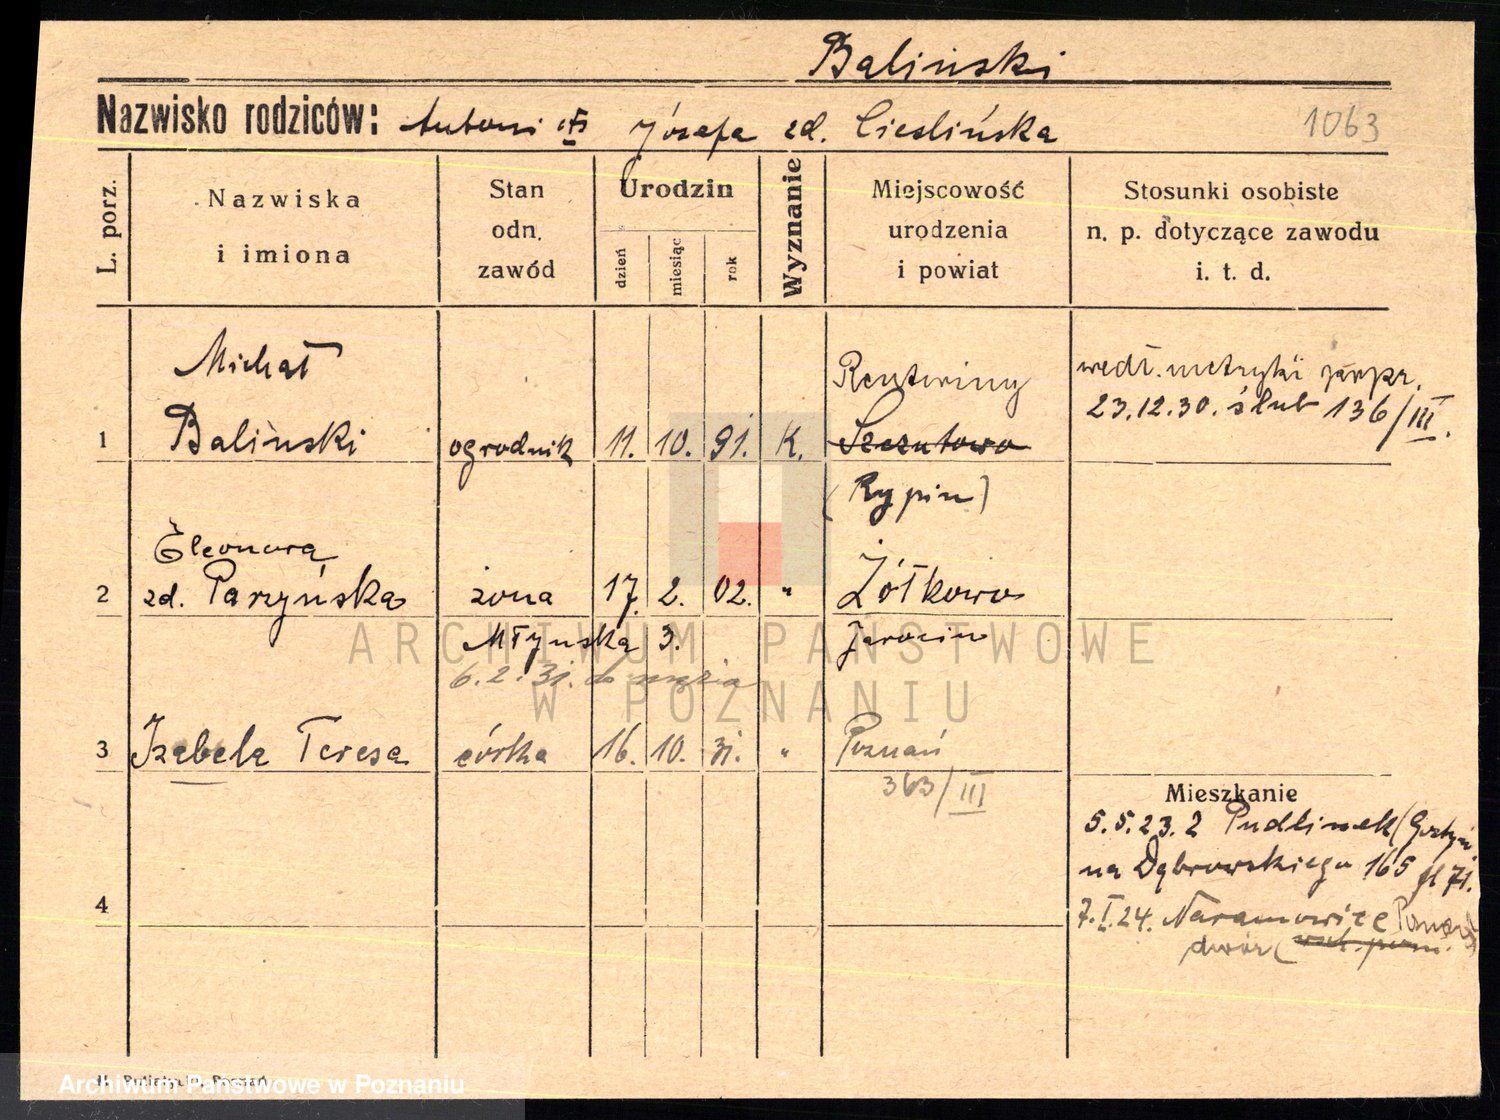 Baliński
Nazwisko rodziców: Antoni Józefa zd. Cieślińska
1063
L. porz.
Nazwiska i imiona
Stan odn. zawód
Urodzin
dzień miesiąc rok
Wyznanie
Miejscowość urodzenia i powiat
Stosunki osobiste n. p. dotyczące zawodu i. t. d.
1 Michał Baliński ogrodnik 11. 10. 91. K. Szczutowo (Rypin)
wedł. metryki
23.12.30. ślub 136/III.
2 Eleonora zd. Parzyńska żona 17. 2. 02. " Żółkowo Jarocin
Młyńska 3.
6.2.31. do męża
3 Izabela Teresa córka 16. 10. 31. " Poznań
363/III
Mieszkanie
5.5.23. z Pudliszek (Gostyń
na Dąbrowskiego 165
7.I.24. Naramowice
dwór
4
ARCHIWUM PAŃSTWOWE
W POZNANIU
Archiwum Państwowe w Poznaniu